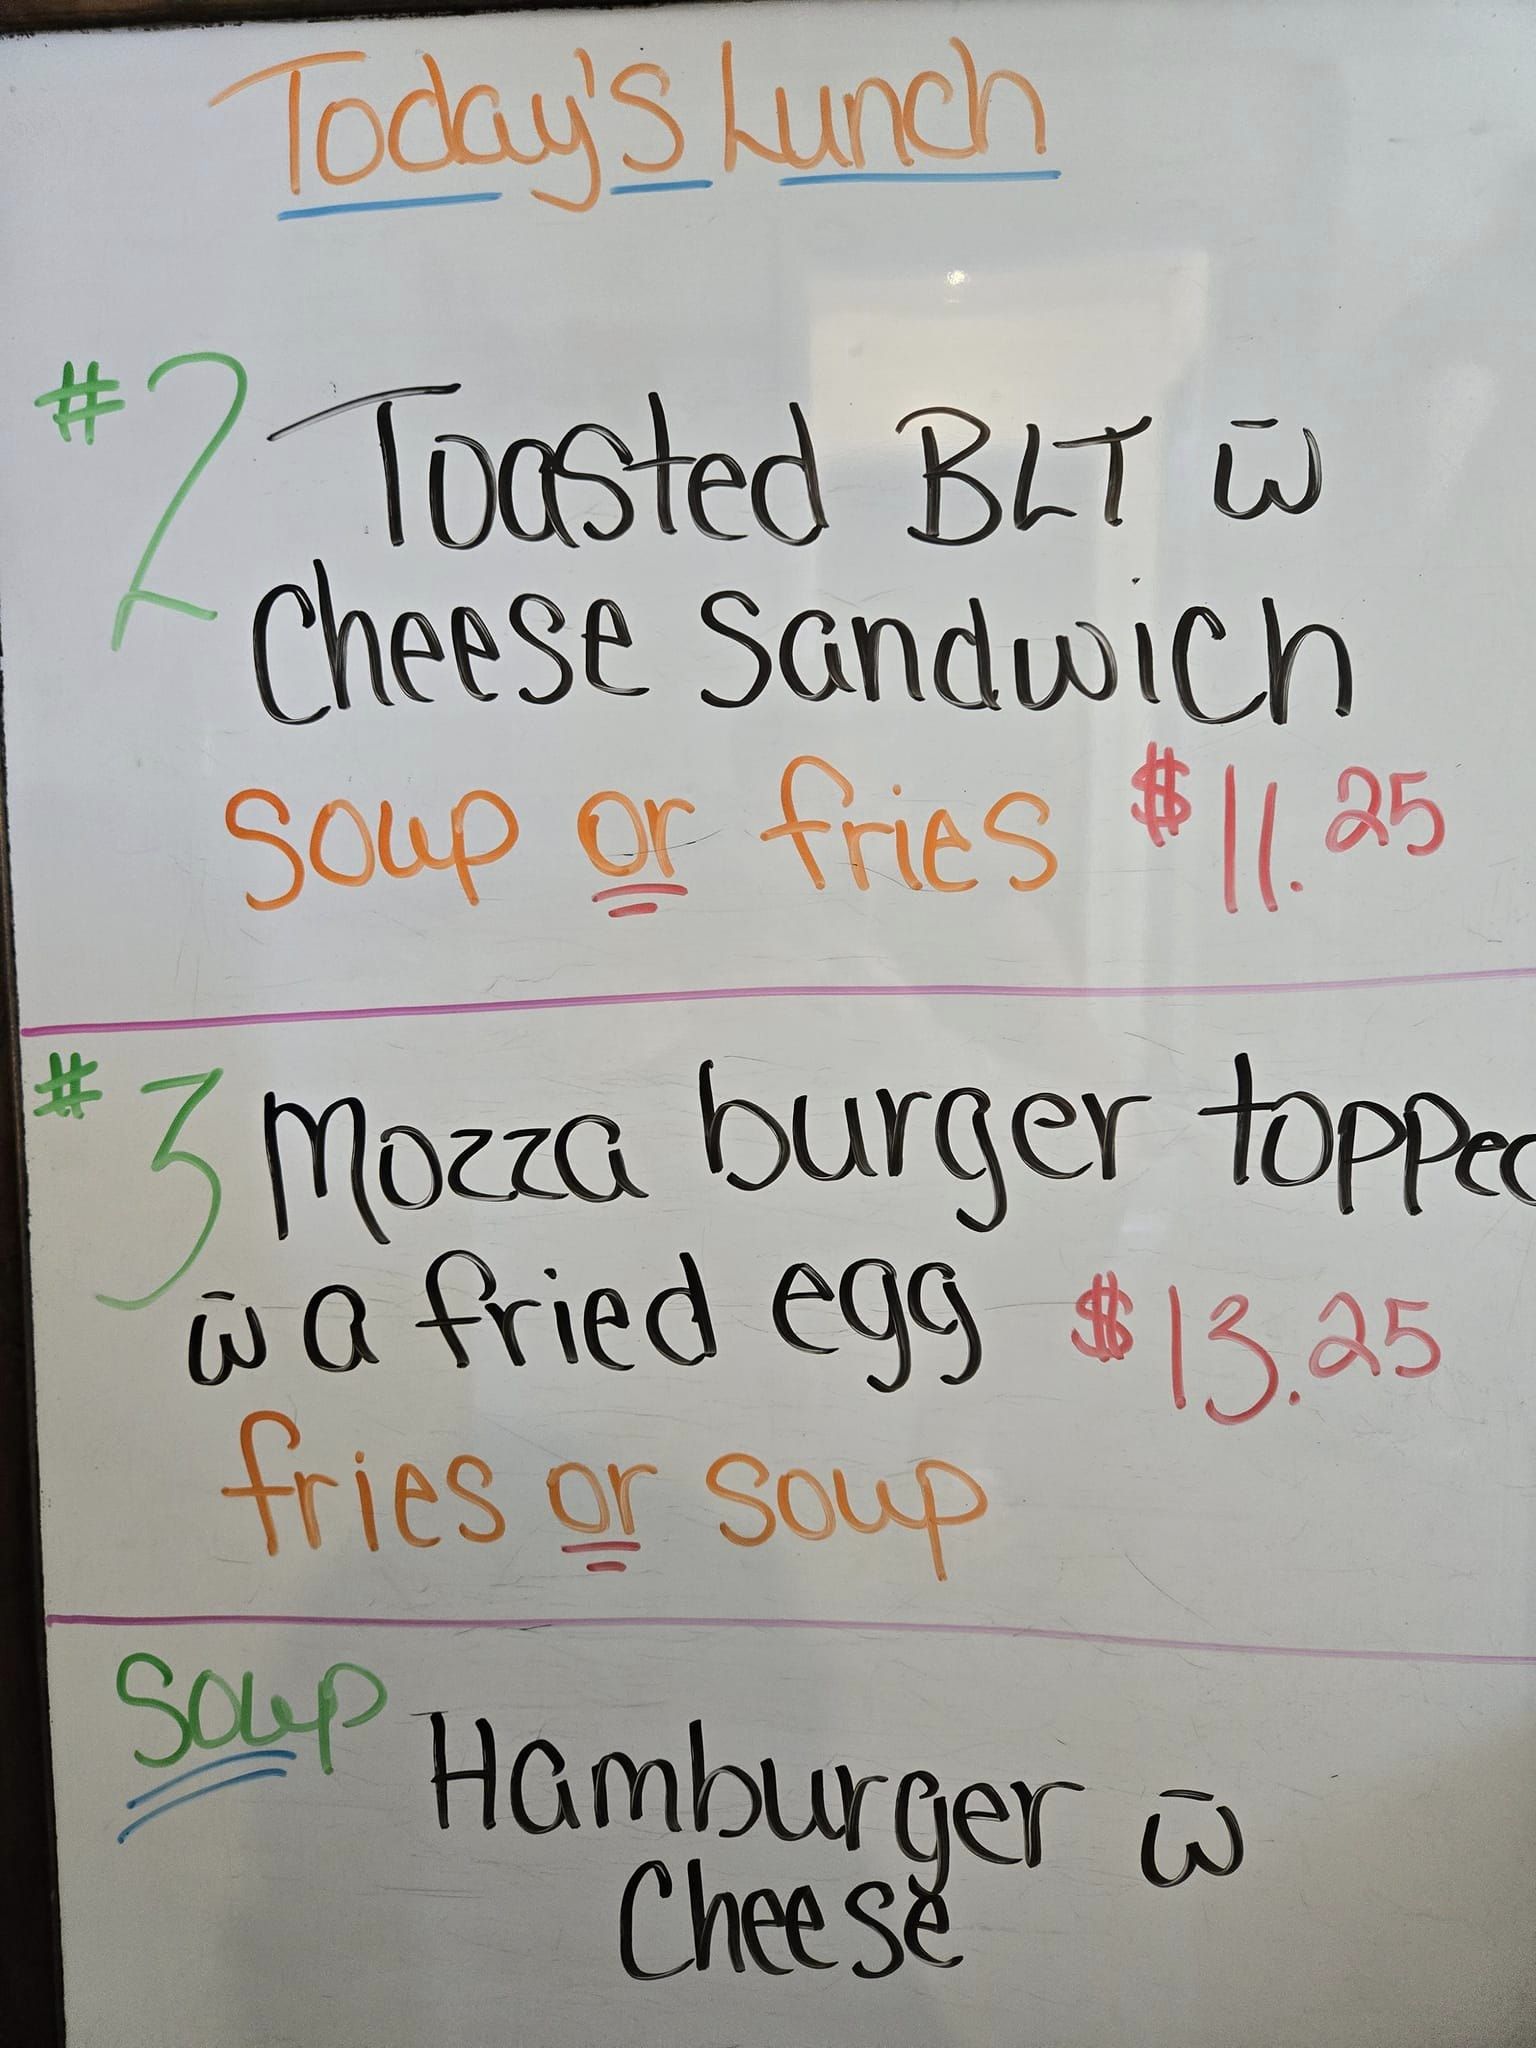 Today's Lunch
#2 Toasted BLT w̄
Cheese Sandwich
soup or fries $11.25
#3 Mozza burger topped
w̄ a fried egg $13.25
fries or soup
Soup Hamburger w̄
Cheese